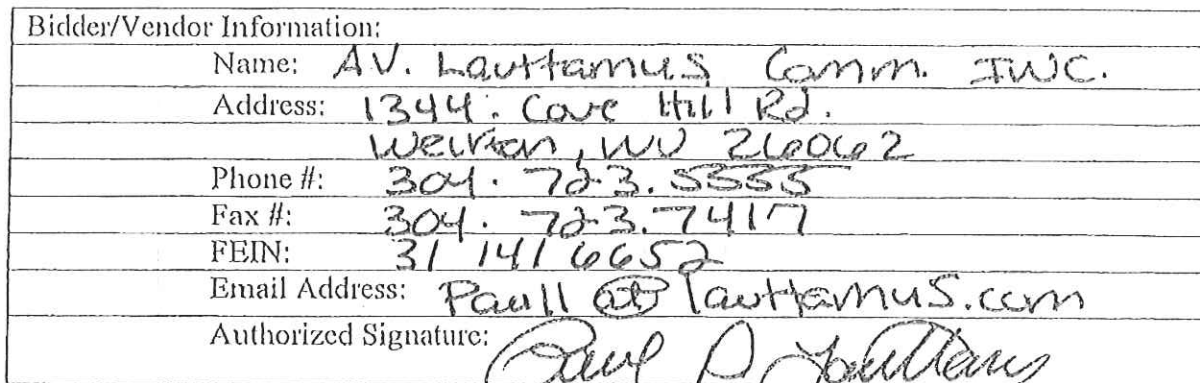 Bidder/Vendor Information:
Name: A.V. Lauttamus Comm. INC.
Address: 1344. Cove Hill Rd.
Weirton, WV 26062
Phone #: 304. 723. 5555
Fax #: 304. 723. 7417
FEIN: 31 141 6652
Email Address: Paull @ lauttamus.com
Authorized Signature: Paul D Lauttamus